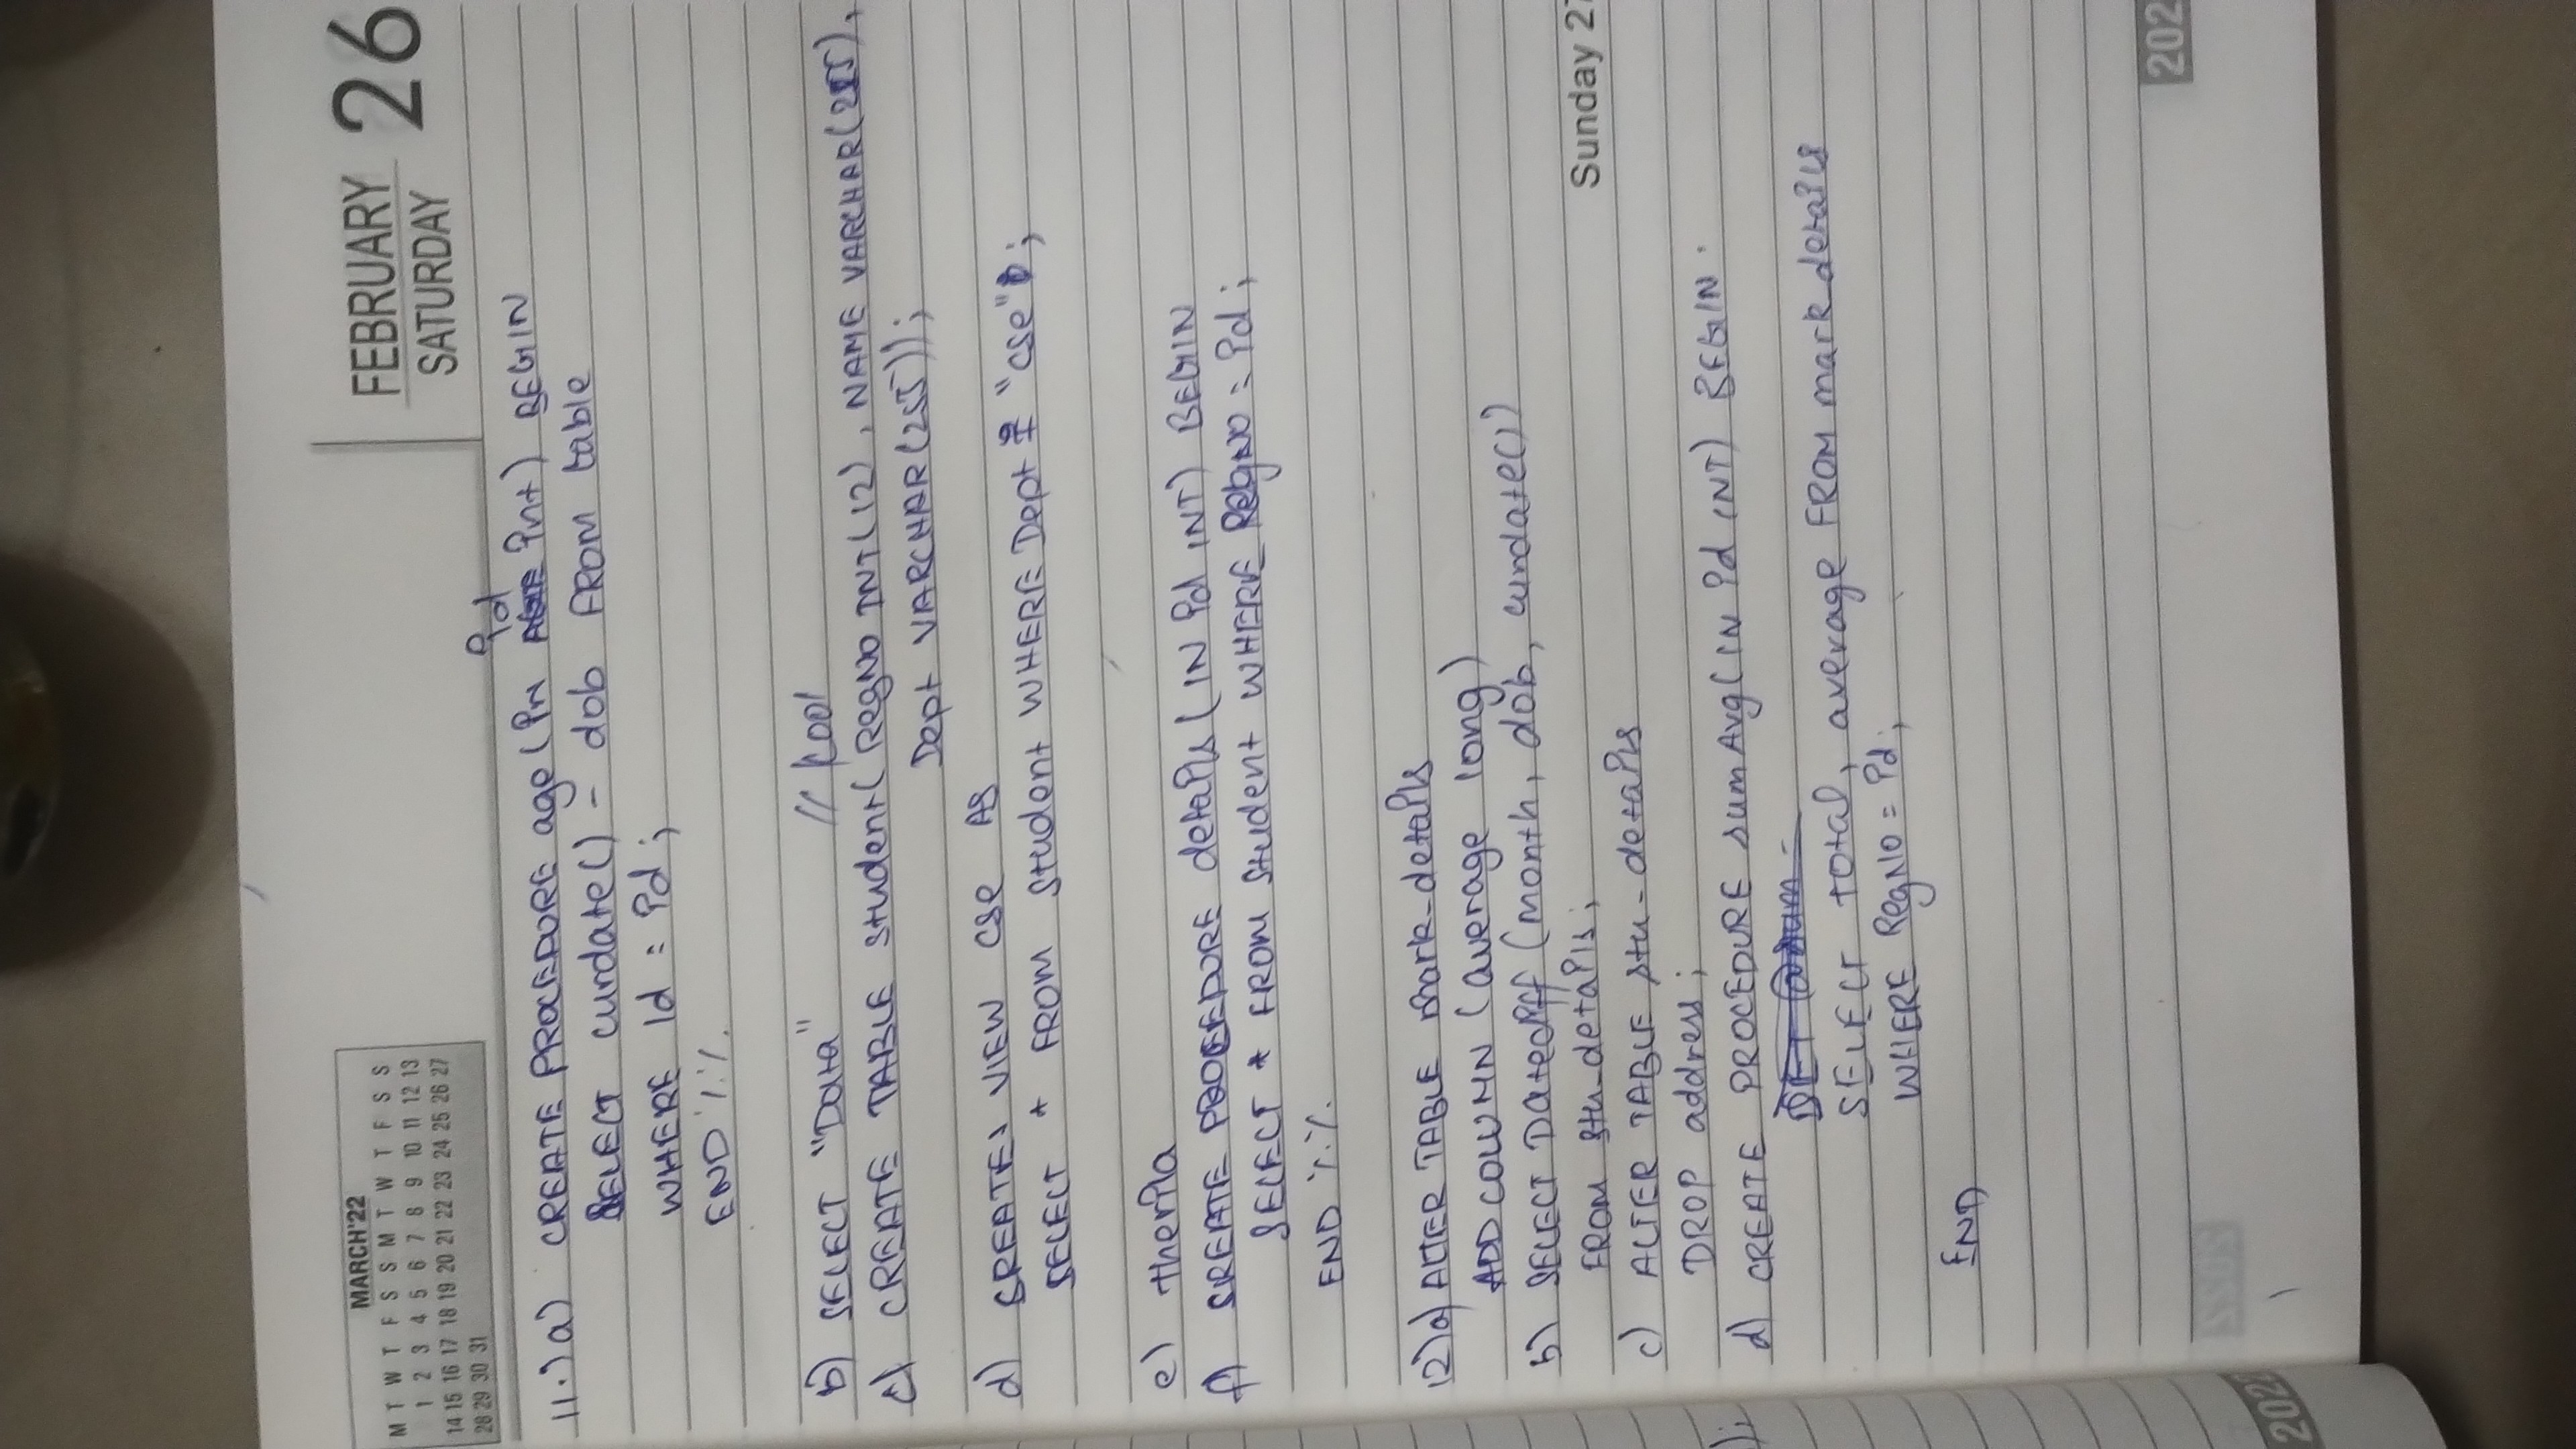 MARCH'22
M T W T F S S M T W T F S S
1 2 3 4 5 6 7 8 9 10 11 12 13
14 15 16 17 18 19 20 21 22 23 24 25 26 27
28 29 30 31
FEBRUARY 26
SATURDAY
id
11.) a) CREATE PROCEDURE age (in int) BEGIN
SELECT curdate() - dob FROM table
WHERE Id = id;
END %%
b) SELECT "Data" // kool
c) CREATE TABLE student( RegNO INT(12), NAME VARCHAR(255),
Dept VARCHAR(255));
d) CREATE VIEW cse AS
SELECT * FROM student WHERE Dept = "cse";
e)
f) CREATE PROCEDURE details (IN id INT) BEGIN
SELECT * FROM student WHERE RegNO = id;
END %%
12) a) ALTER TABLE mark_details
ADD COLUMN (average long)
b) SELECT Datediff (month, dob, curdate())
FROM stu_details;
c) ALTER TABLE stu_details
DROP address;
Sunday 27
d) CREATE PROCEDURE sumAvg(IN id INT) BEGIN
SELECT total, average FROM mark_details
WHERE RegNO = id;
END
202
2022